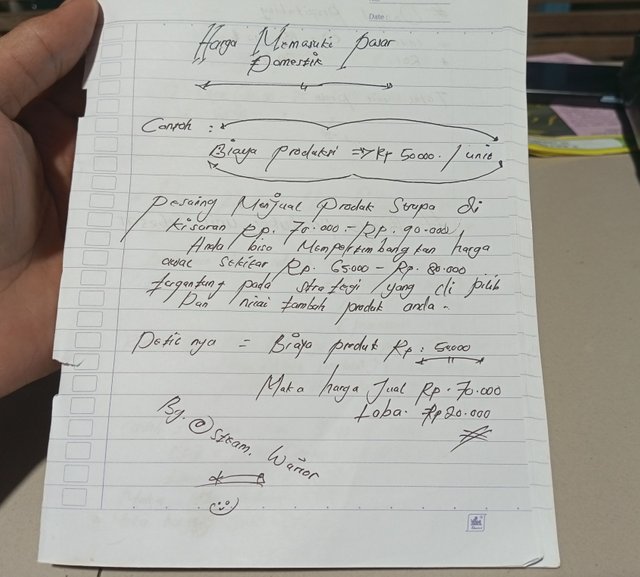 Date:
Harga Memasuki pasar
Domestik
Contoh :
Biaya produksi => Rp 50000. / unit
pesaing Menjual produk Serupa di
kisaran Rp. 70.000 - Rp. 90.000
Anda bisa Mempertimbangkan harga
awal sekitar Rp. 65000 - Rp. 80.000
tergantung pada strategi yang di pilih
Dan nilai tambah produk anda.
nya = Biaya produk Rp : 50000
Maka harga Jual Rp. 70.000
Laba. Rp 20.000
By. @ Steam. Warior